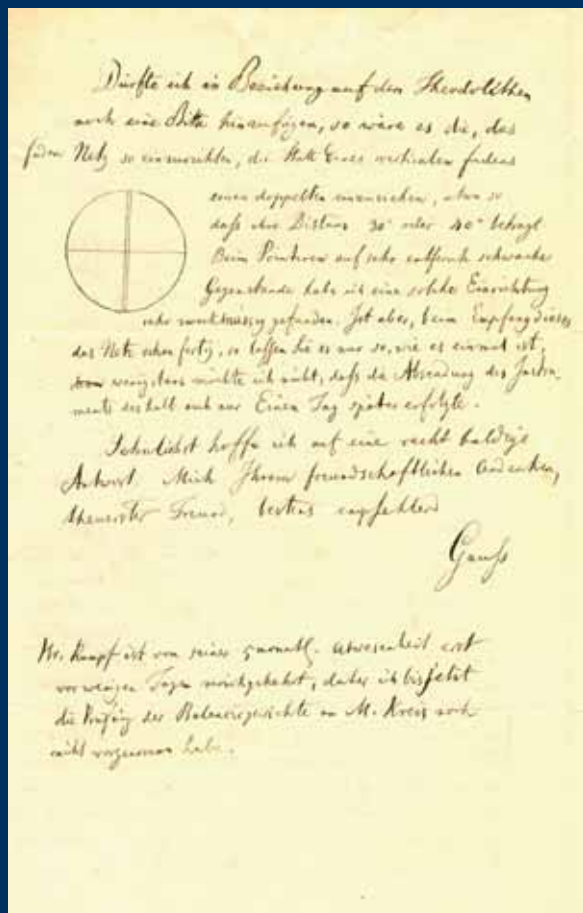 Dürfte ich in Beziehung auf den Theodolithen
noch eine Bitte hinzufügen, so wäre es die, das
Faden Netz so einzurichten, die Statt Eines verticalen Fadens
einen doppelten einzuziehen, etwa so
daß ihre Distanz 30" oder 40" beträgt
Beim Pointiren auf sehr entfernte schwache
Gegenstände habe ich eine solche Einrichtung
sehr zweckmässig gefunden. Ist aber, beim Empfang dieses
das Netz schon fertig, so lassen Sie es nur so, wie es einmal ist,
wenigstens möchte ich nicht, daß die Absendung des Instru-
ments deshalb auch nur Einen Tag später erfolgte.
Sehnlichst hoffe ich auf eine recht baldige
Antwort. Mich Ihrem freundschaftlichen Andenken,
theuerster Freund, bestens empfehlend
Gauß
Hr. Rumpf ist von seiner 5monatl. Abwesenheit erst
vor wenigen Tagen zurückgekehrt, daher ich bis jetzt
die der am M. Kreis noch
nicht vorgenommen habe.